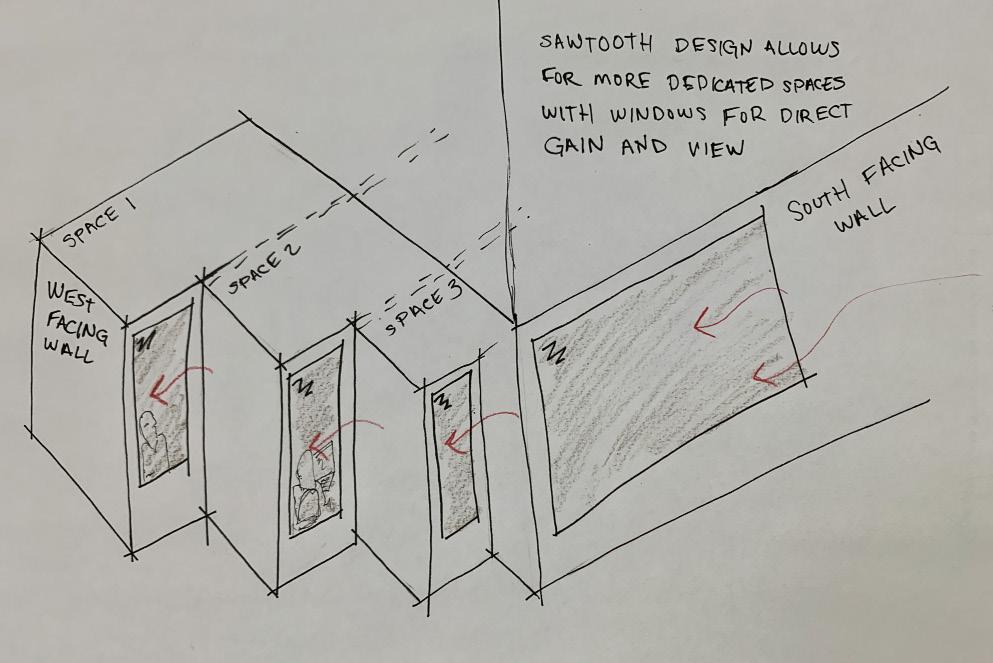 SAWTOOTH DESIGN ALLOWS
FOR MORE DEDICATED SPACES
WITH WINDOWS FOR DIRECT
GAIN AND VIEW
SOUTH FACING
WALL
SPACE 1
SPACE 2
SPACE 3
WEST
FACING
WALL